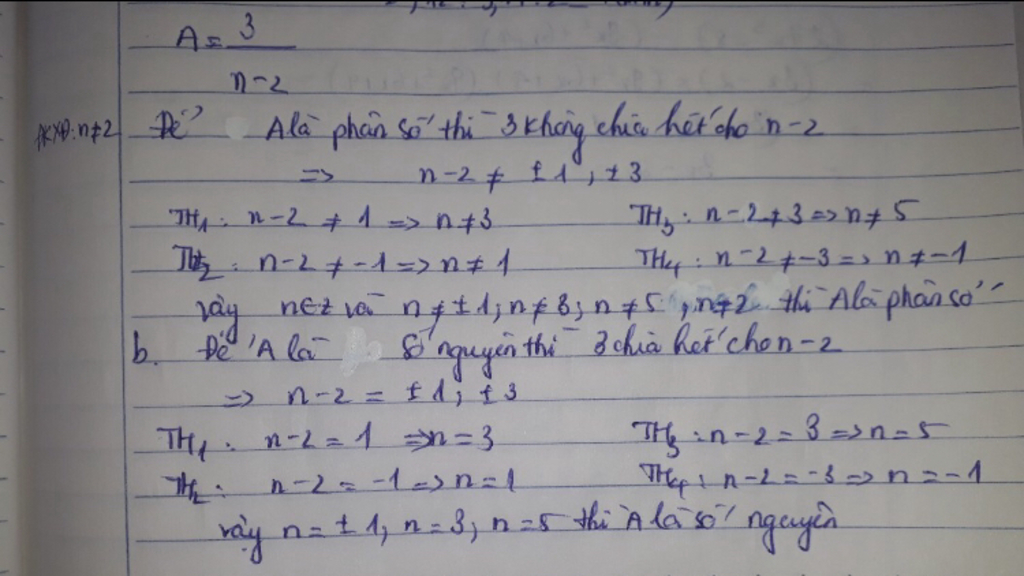 A = 3
n-2
ĐKXĐ: n≠2
Để A là phân số thì 3 không chia hết cho n-2
=> n-2 ≠ ±1, ±3
TH1: n-2 ≠ 1 => n≠3
TH3: n-2≠3 => n≠5
TH2: n-2 ≠ -1 => n≠1
TH4: n-2≠-3 => n≠-1
vậy n∈Z và n≠±1; n≠3; n≠5; n≠2 thì A là phân số
b. Để A là số nguyên thì 3 chia hết cho n-2
=> n-2 = ±1; ±3
TH1: n-2=1 => n=3
TH3: n-2=3 => n=5
TH2: n-2=-1 => n=1
TH4: n-2=-3 => n=-1
vậy n=±1, n=3; n=5 thì A là số nguyên